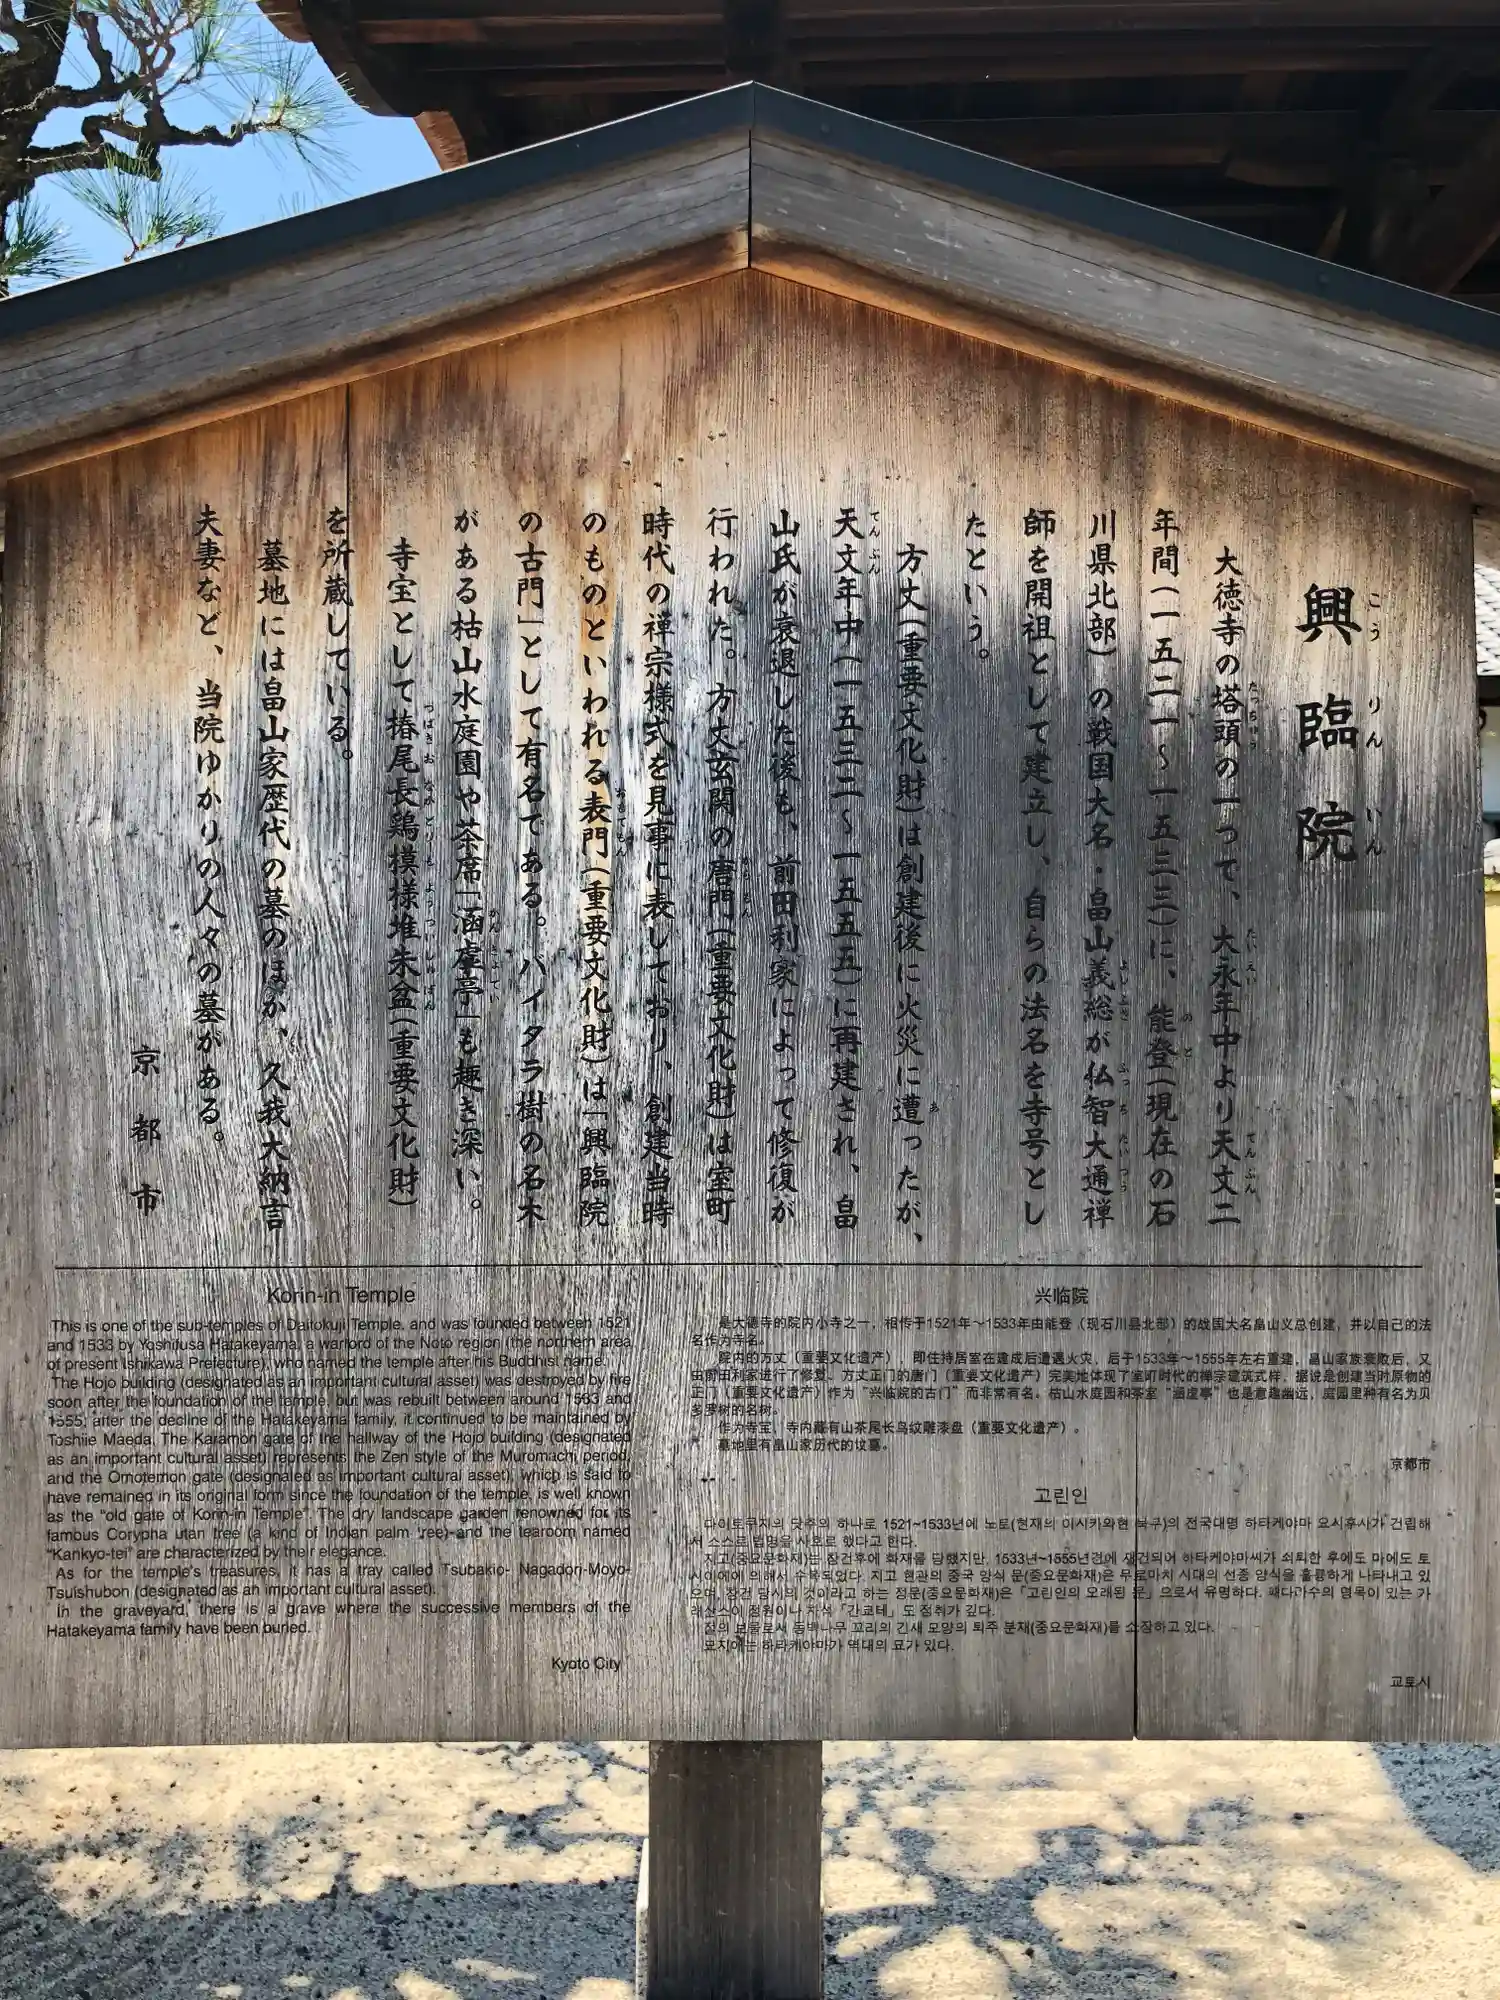 興臨院
こうりんいん
大徳寺の塔頭の一つで、大永年中より天文二
年間(一五二一〜一五三三)に、能登(現在の石
川県北部)の戦国大名・畠山義総が仏智大通禅
師を開祖として建立し、自らの法名を寺号とし
たという。
方丈(重要文化財)は創建後に火災に遭ったが、
天文年中(一五三二〜一五五五)に再建され、畠
山氏が衰退した後も、前田利家によって修復が
行われた。方丈玄関の唐門(重要文化財)は室町
時代の禅宗様式を見事に表しており、創建当時
のものといわれる表門(重要文化財)は「興臨院
の古門」として有名である。バイタラ樹の名木
がある枯山水庭園や茶席「涵虚亭」も趣き深い。
寺宝として椿尾長鶏模様堆朱盆(重要文化財)
を所蔵している。
墓地には畠山家歴代の墓のほか、久我大納言
夫妻など、当院ゆかりの人々の墓がある。
京都市
Korin-in Temple
This is one of the sub-temples of Daitokuji Temple, and was founded between 1521
and 1533 by Yoshifusa Hatakeyama, a warlord of the Noto region (the northern area
of present Ishikawa Prefecture), who named the temple after his Buddhist name.
The Hojo building (designated as an important cultural asset) was destroyed by fire
soon after the foundation of the temple, but was rebuilt between around 1533 and
1555; after the decline of the Hatakeyama family, it continued to be maintained by
Toshiie Maeda. The Karamon gate of the hallway of the Hojo building (designated
as an important cultural asset) represents the Zen style of the Muromachi period,
and the Omotemon gate (designated as important cultural asset), which is said to
have remained in its original form since the foundation of the temple, is well known
as the "old gate of Korin-in Temple". The dry landscape garden renowned for its
famous Corypha utan tree (a kind of Indian palm tree) and the tearoom named
"Kankyo-tei" are characterized by their elegance.
As for the temple's treasures, it has a tray called Tsubakio- Nagadori-Moyo-
Tsuishubon (designated as an important cultural asset).
In the graveyard, there is a grave where the successive members of the
Hatakeyama family have been buried.
Kyoto City
兴临院
是大德寺的院内小寺之一，相传于1521年～1533年由能登（现石川县北部）的战国大名畠山义总创建，并以自己的法
名作为寺名。
院内的方丈（重要文化遗产），即住持居室在建成后遭遇火灾，后于1533年～1555年左右重建，畠山家族衰败后，又
由前田利家进行了修复。方丈正门的唐门（重要文化遗产）完美地体现了室町时代的禅宗建筑式样，据说是创建当时原物的
正门（重要文化遗产）作为“兴临院的古门”而非常有名。枯山水庭园和茶室“涵虚亭”也是意趣幽远，庭园里种有名为贝
多罗树的名树。
作为寺宝，寺内藏有山茶尾长鸟纹雕漆盘（重要文化遗产）。
墓地里有畠山家历代的坟墓。
京都市
고린인
다이토쿠지의 탓추의 하나로 1521~1533년에 노토(현재의 이시카와현 북구)의 전국대명 하타케야마 요시후사가 건립해
서 스스로 법명을 사호로 했다고 한다.
지고(중요문화재)는 창건후에 화재를 당했지만, 1533년~1555년경에 재건되어 하타케야마씨가 쇠퇴한 후에도 마에도 토
시이에에 의해서 수복되었다. 지고 현관의 중국 양식 문(중요문화재)은 무로마치 시대의 선종 양식을 훌륭하게 나타내고 있
으며, 창건 당시의 것이라고 하는 정문(중요문화재)은「고린인의 오래된 문」으로서 유명하다. 패다라수의 명목이 있는 가
레산스이 정원이나 차석「간쿄테」도 정취가 깊다.
절의 보물로써 동백나무 꼬리의 긴새 모양의 퇴주 분재(중요문화재)를 소장하고 있다.
묘지에는 하타케야마가 역대의 묘가 있다.
교토시